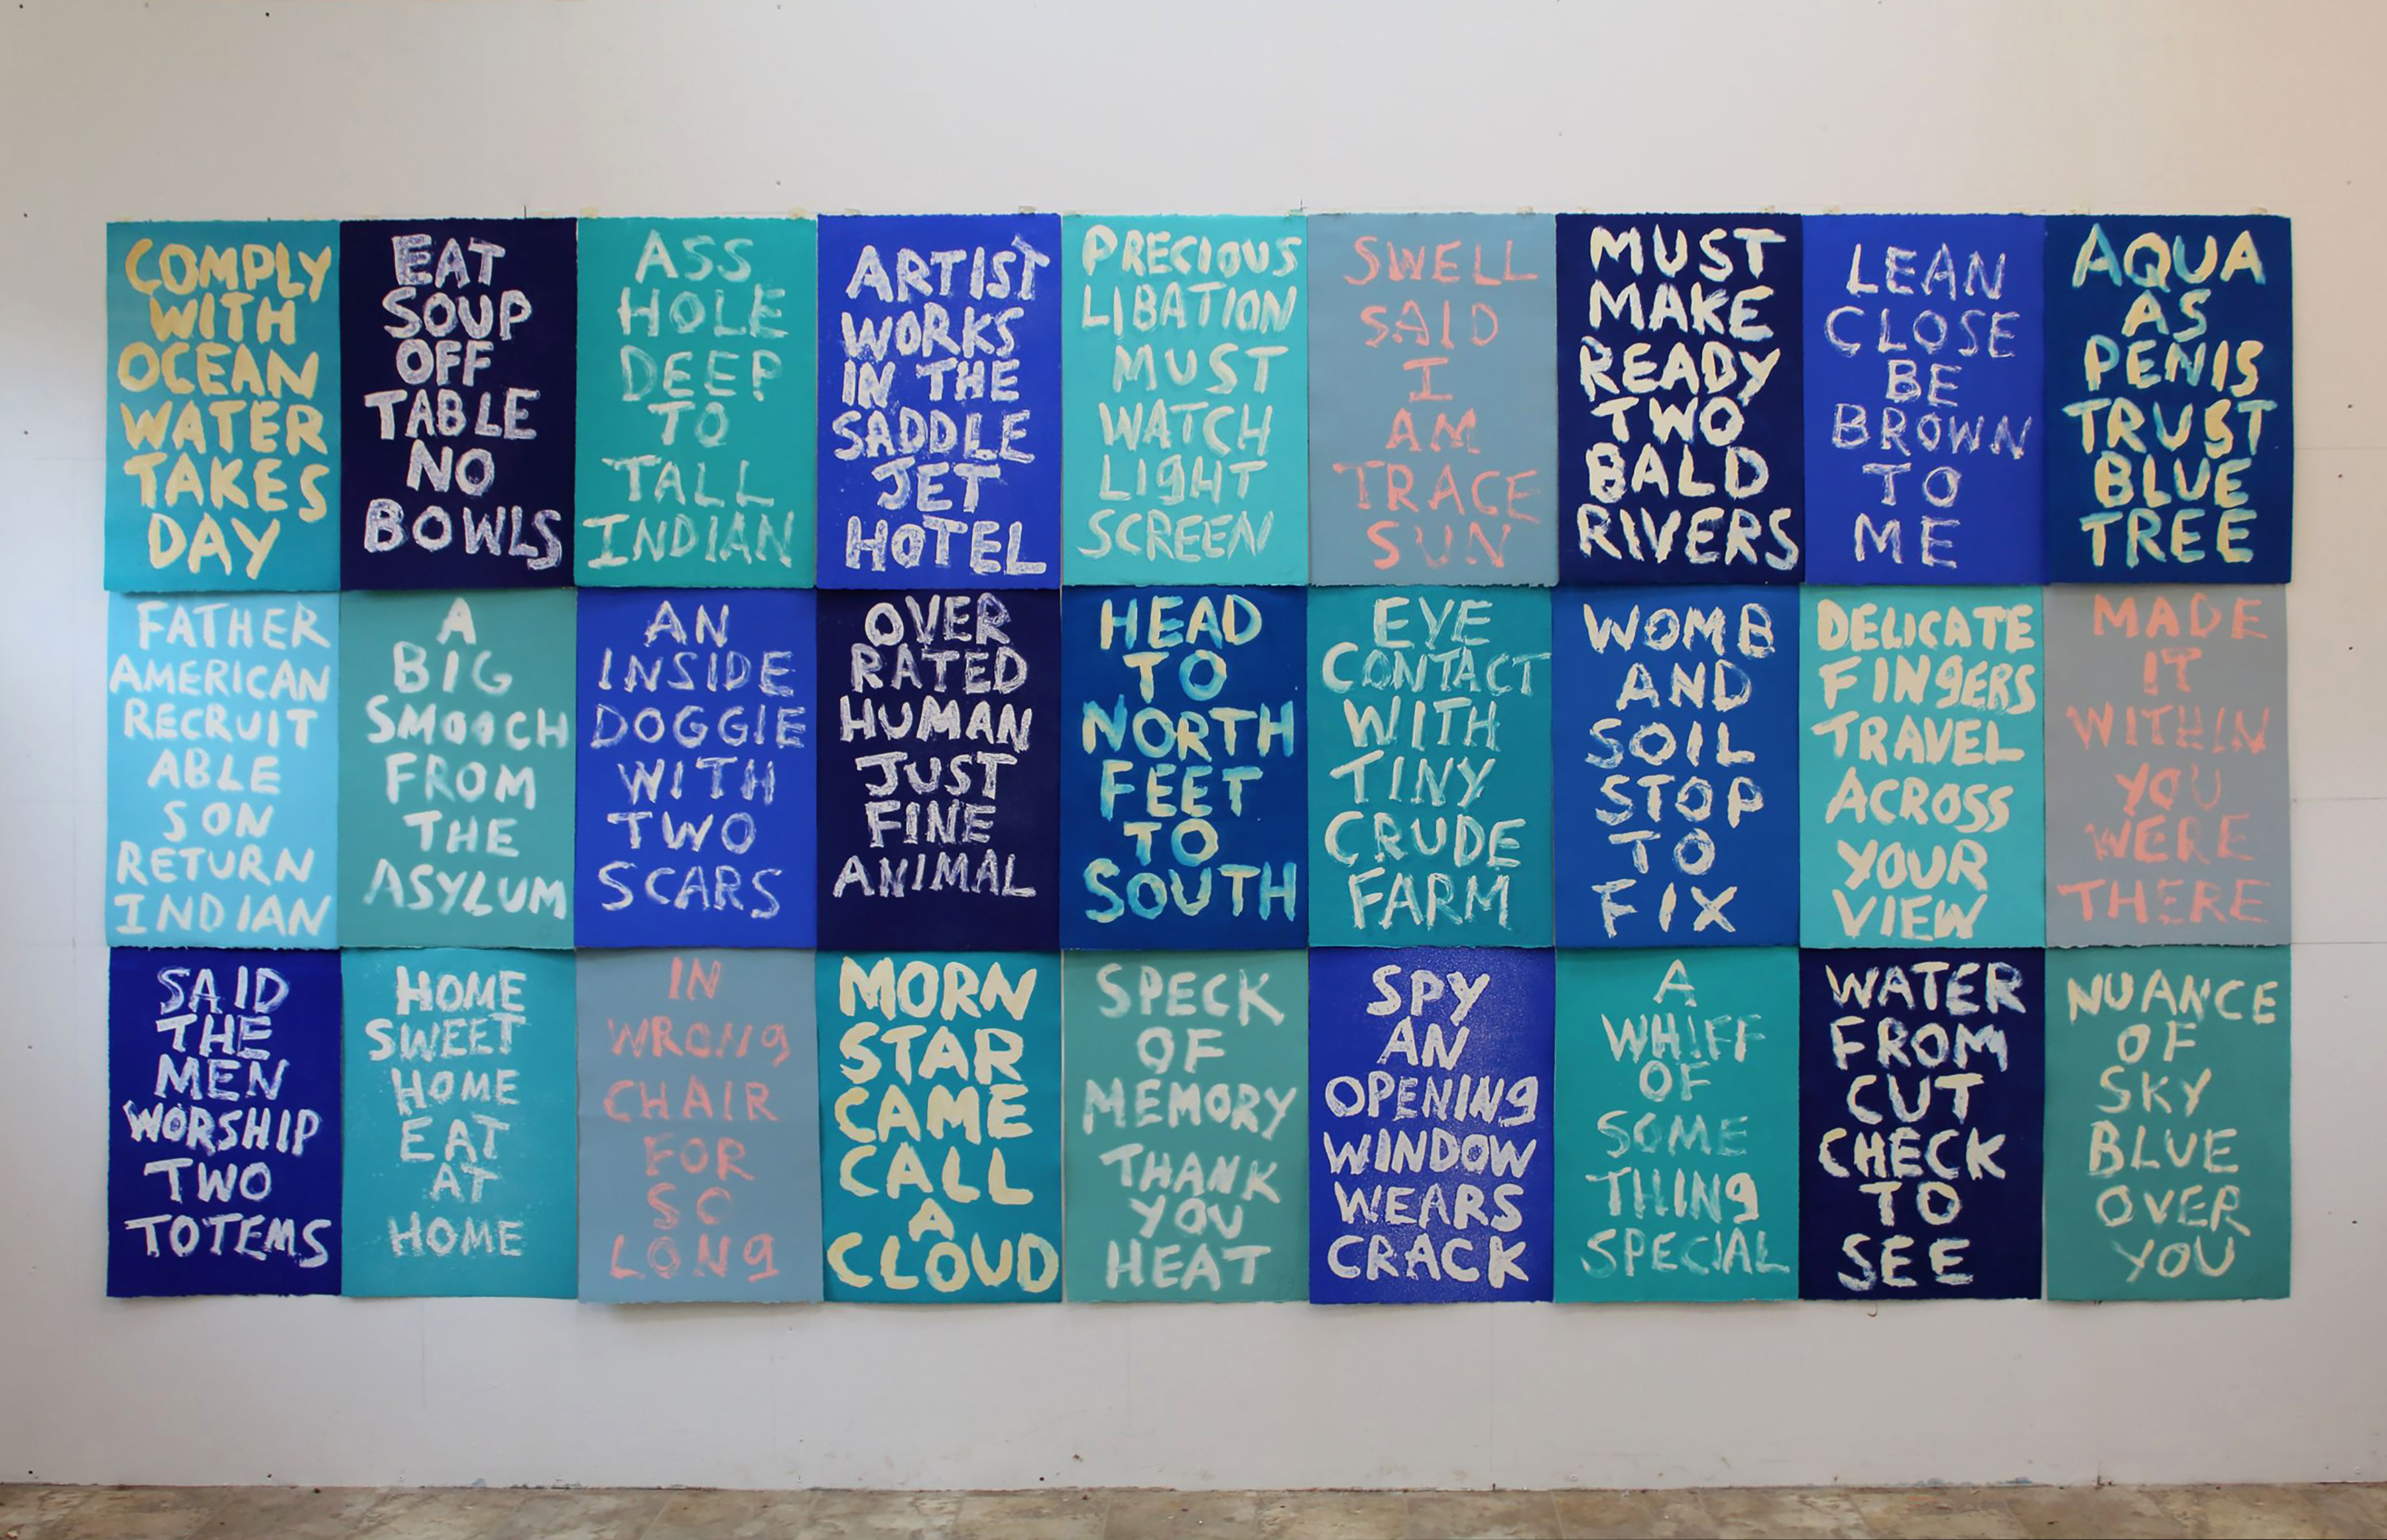 COMPLY
WITH
OCEAN
WATER
TAKES
DAY
EAT
SOUP
OFF
TABLE
NO
BOWLS
ASS
HOLE
DEEP
TO
TALL
INDIAN
ARTIST
WORKS
IN THE
SADDLE
JET
HOTEL
PRECIOUS
LIBATION
MUST
WATCH
LIGHT
SCREEN
SWELL
SAID
I
AM
TRACE
SUN
MUST
MAKE
READY
TWO
BALD
RIVERS
LEAN
CLOSE
BE
BROWN
TO
ME
AQUA
AS
PENIS
TRUST
BLUE
TREE
FATHER
AMERICAN
RECRUIT
ABLE
SON
RETURN
INDIAN
A
BIG
SMOOCH
FROM
THE
ASYLUM
AN
INSIDE
DOGGIE
WITH
TWO
SCARS
OVER
RATED
HUMAN
JUST
FINE
ANIMAL
HEAD
TO
NORTH
FEET
TO
SOUTH
EYE
CONTACT
WITH
TINY
CRUDE
FARM
WOMB
AND
SOIL
STOP
TO
FIX
DELICATE
FINGERS
TRAVEL
ACROSS
YOUR
VIEW
MADE
IT
WITHIN
YOU
WERE
THERE
SAID
THE
MEN
WORSHIP
TWO
TOTEMS
HOME
SWEET
HOME
EAT
AT
HOME
IN
WRONG
CHAIR
FOR
SO
LONG
MORN
STAR
CAME
CALL
A
CLOUD
SPECK
OF
MEMORY
THANK
YOU
HEAT
SPY
AN
OPENING
WINDOW
WEARS
CRACK
A
WHIFF
OF
SOME
THING
SPECIAL
WATER
FROM
CUT
CHECK
TO
SEE
NUANCE
OF
SKY
BLUE
OVER
YOU